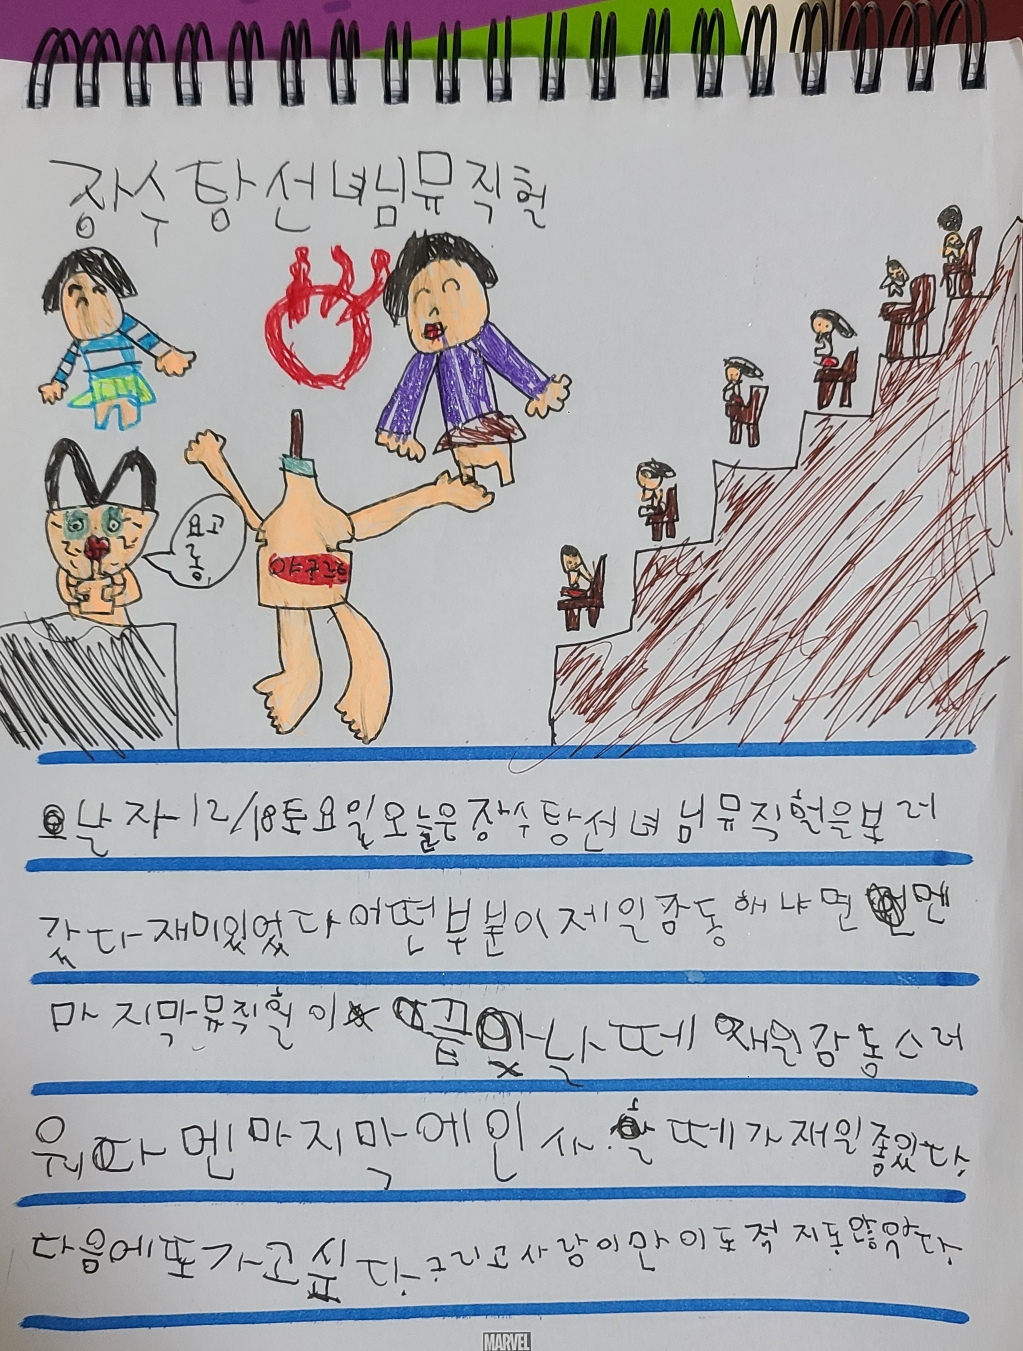 장수탕선녀님뮤직헐
요고 룽이
야구르트
날자12/18토요일오늘은장수탕선녀님뮤직헐을보러
갔다재미있었다어떤부분이제일감동해냐면멘
마지막뮤직헐이끝날때재일감동스러
워따멘마지막에인사할때가재일좋았다.
다음에또가고십다.그리고사람이만이도적지동않았다.
MARVEL